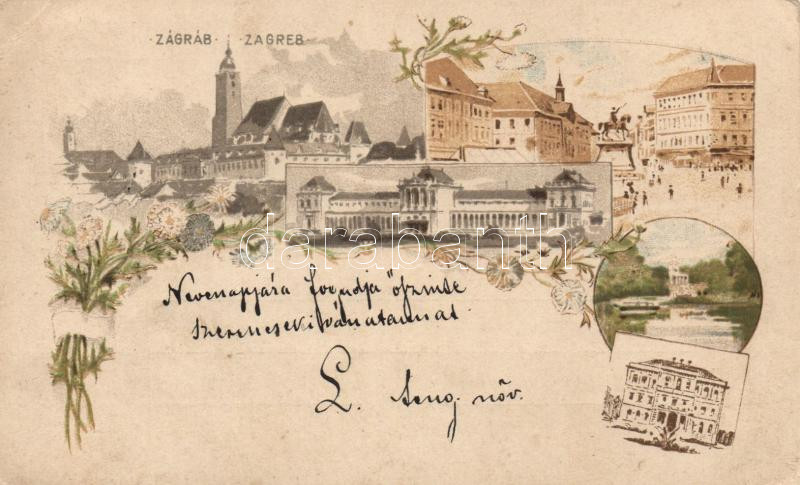 ZÁGRÁB · ZAGREB
darabanth
Nevenapjára fogadja őszinte
szerencsekivánataimat
L.